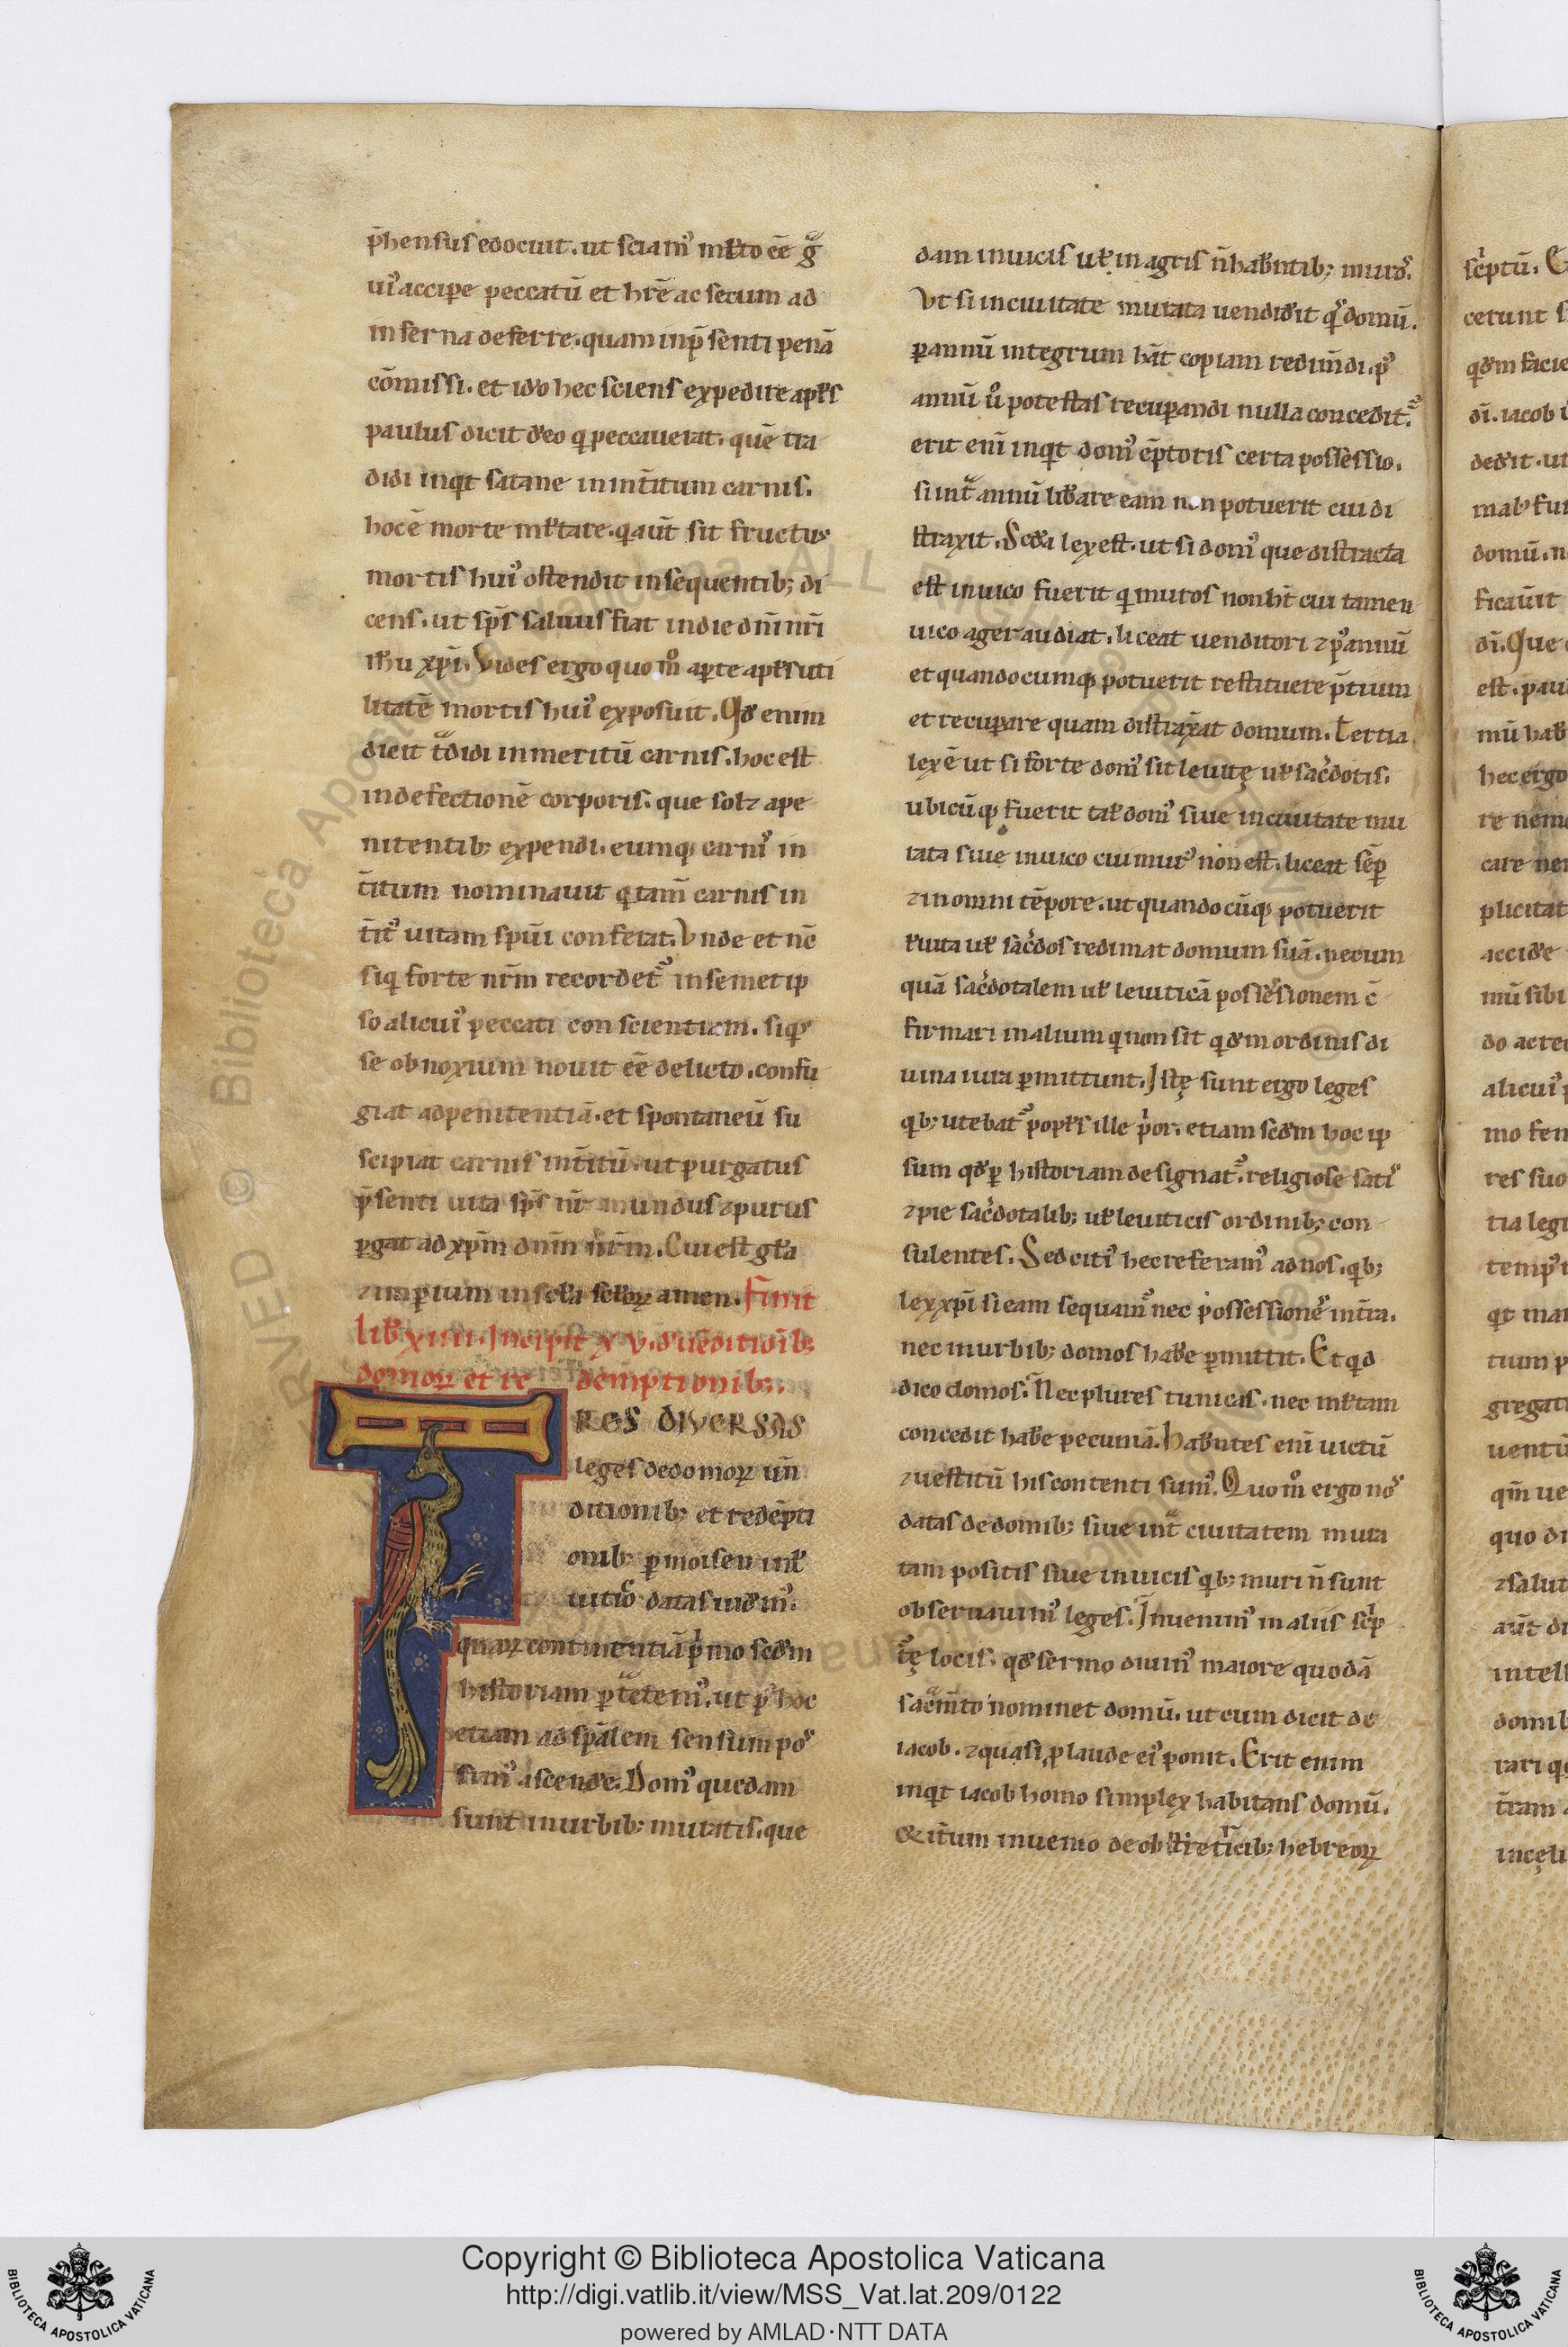 p̄hensus edocuit. ut sciam᷒ ml̄to eē gͣ
ui᷒ accipe peccatū et hr̄e ac secum ad
inferna deferre. quam in p̄senti penā
cōmissi. et ido hec sciens expedire apl̄s
paulus dicit deo q peccauerat. quē tra
didi inqt satane in int̄itum carnis.
hoc ē morte ml̄tare. q aūt sit fructus
mortis hui᷒ ostendit in sequentib; di
cens. ut sp̄s saluus fiat in die dn̄i nr̄i
ih̄u xp̄i. Vides ergo quom̊ aꝑte apl̄s uti
litatē mortis hui᷒ exposuit. Qd enim
dicit tͣdidi in meritū carnis. hoc est
in defectionē corporis. que solꝫ a pe
nitentib; expendi. eumq; carni᷒ in
t̄itum nominauit q tam̄ carnis in
t̄it᷒ uitam sp̄ui conferat. Vnde et nc̄
siq forte nr̄m recordet᷒ in semetip
so alicui᷒ peccati conscientiam. siqs
se obnoxium nouit eē delicto. confu
giat ad penitentiā. et spontaneū su
scipiat carnis int̄itū. ut purgatus
p̄senti uita sp̄s nr̄ mundus ⁊ purus
ꝑgat ad xp̄m dn̄m nr̄m. Cui est gl̄a
⁊ imꝑium in scl̄a scl̄oꝝ amen. Finit
lib̄ xiiii. Incipit xv. d uēditioīb;
domoꝝ et re demptionib;.
TRES DIVERSAS
leges de domoꝝ uн̄
ditionib; et redēpti
onib; ꝑ moisen inl̄
tutio᷒ datas uidem᷒.
quaꝝ continentiā pͥmo scdm
historiam ꝑtͣctem᷒. ut p᷒ hoc
etiam ad sp̄alem sensum pos᷒
sim᷒ ascende. Dom᷒ quedam
sunt in urbib; muratis. que
dam in uicis ul̄ in agris n̄ hab̄ntib; muros᷒.
Vt si in ciuitate murata uendid̄it qs domū.
ꝑ annū integrum hāt copiam redim̄di. p᷒
annū ů potestas recuꝑandi nulla concedit᷒.
erit eni᷒ inqt dom᷒ ēptoris certa possessio.
si intͣ annū lib̄are eam non potuerit cui di
straxit. Scd̄a lex est. ut si dom᷒ que distracta
est in uico fuerit q muros non ht̄ cui tamen
uico ager audiat. liceat uenditori ⁊ p᷒ annū
et quandocumq; potuerit restituere p̄tium
et recuꝑare quam distrax̄at domum. Tertia
lex ē ut si forte dom᷒ sit leuitę ul̄ sac̄dotis.
ubicūq; fuerit tal̄ dom᷒ siue in ciuitate mu
rata siue in uico cui mur᷒ non est. liceat sēꝑ
⁊ in omni tēpore. ut quandocūq; potuerit
leuita ul̄ sac̄dos redimat domum suā. necum
quā sac̄dotalem ul̄ leuiticā possessionem c̄
firmari in alium q non sit qdm ordinis di
uina iura ꝑmittunt. Istę sunt ergo leges
qb; utebat᷒ popl̄s ille pͥor. etiam scdm hoc ip
sum qd ꝑ historiam designat᷒. religiose satis᷒
⁊ pie sac̄dotalib; ul̄ leuiticis ordinib; con
sulentes. Sed citi᷒ hec referam᷒ ad nos. qb;
lex xp̄i si eam sequam᷒ nec possessione᷒ in t̄ra.
nec in urbib; domos hab̄e ꝑmittit. Et qd
dico domos. Nec plures tunicas. nec ml̄tam
concedit hab̄e pecuniā. Hab̄ntes eni᷒ uictū
⁊ uestitū his contenti sum᷒. Quom̊ ergo nos᷒
datas de domib; siue intͣ ciuitatem mura
tam positis siue in uicis qb; muri n̄ sunt
obseruauim᷒ leges. Inuenim᷒ in aliis scͥp
t᷒ę locis. qd sermo diuin᷒ maiore quodā
sacͣm̄to nominet domū. ut cum dicit de
iacob. ⁊ quasi ꝓ laude ei᷒ ponit. Erit enim
inqt iacob homo simplex habitans domū.
& it̄um inuenio de obstetricib; hebreoꝝ
scͥptū.
cerunt
di. iacob
dedit. ut
domū. n
di. Que
est. pau
mū hab
hec ergo
re nem
plicitat
accide
mū sibi
alicui᷒
res suo
tia legi
tum p
gregati
uentū
quo di
⁊ salut
aūt di
intell
domib
Copyright © Biblioteca Apostolica Vaticana
http://digi.vatlib.it/view/MSS_Vat.lat.209/0122
powered by AMLAD·NTT DATA
BIBLIOTECA APOSTOLICA VATICANA
BIBLIOTECA APOSTOLICA VATICANA